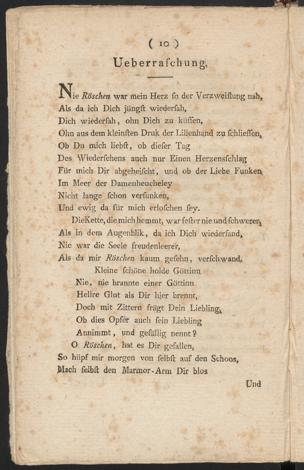 ( 10 )
Ueberraschung.
Nie Röschen war mein Herz so der Verzweiflung nah,
Als da ich Dich jüngst wiedersah,
Dich wiedersah, ohn Dich zu küssen,
Ohn aus dem kleinsten Druk der Lilienhand zu schliessen,
Ob Du mich liebst, ob dieser Tag
Des Wiedersehens auch nur Einen Herzensschlag
Für mich Dir abgeheischt, und ob der Liebe Funken
Im Meer der Damenheucheley
Nicht lange schon versunken,
Und ewig da für mich erloschen sey.
Die Kette, die mich hemmt, war fester nie und schwerer,
Als in dem Augenblik, da ich Dich wiederfand,
Nie war die Seele freudenleerer,
Als da mir Röschen kaum gesehn, verschwand.
Kleine schöne holde Göttinn
Nie, nie brannte einer Göttinn
Hellre Glut als Dir hier brennt,
Doch mit Zittern frägt Dein Liebling,
Ob dies Opfer auch sein Liebling
Annimmt, und gefällig nennt?
O Röschen, hat es Dir gefallen,
So hüpf mir morgen von selbst auf den Schoos,
Mach selbst den Marmor-Arm Dir blos
Und